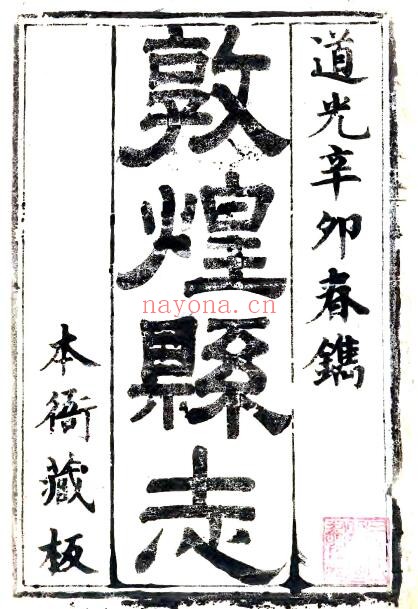 道光辛卯春鐫
敦煌縣志
本衙藏板
nayona.cn